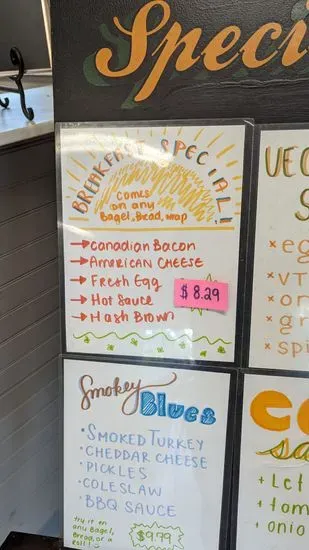 Speci
BREAKFAST SPECIAL!
Comes
on any
Bagel, Bread, wrap
→ Canadian Bacon
→ AMERICAN CHEESE
→ Fresh Egg
→ Hot Sauce
→ Hash Brown
$8.29
VEG
S
× eg
× VT
× on
× gr
× spi
Smokey
Blues
• SMOKED TURKEY
• CHEDDAR CHEESE
• PICKLES
• COLESLAW
• BBQ SAUCE
try it on
any Bagel,
Bread, or a
Roll!
$9.79
C
Sa
+ Let
+ tom
+ onio